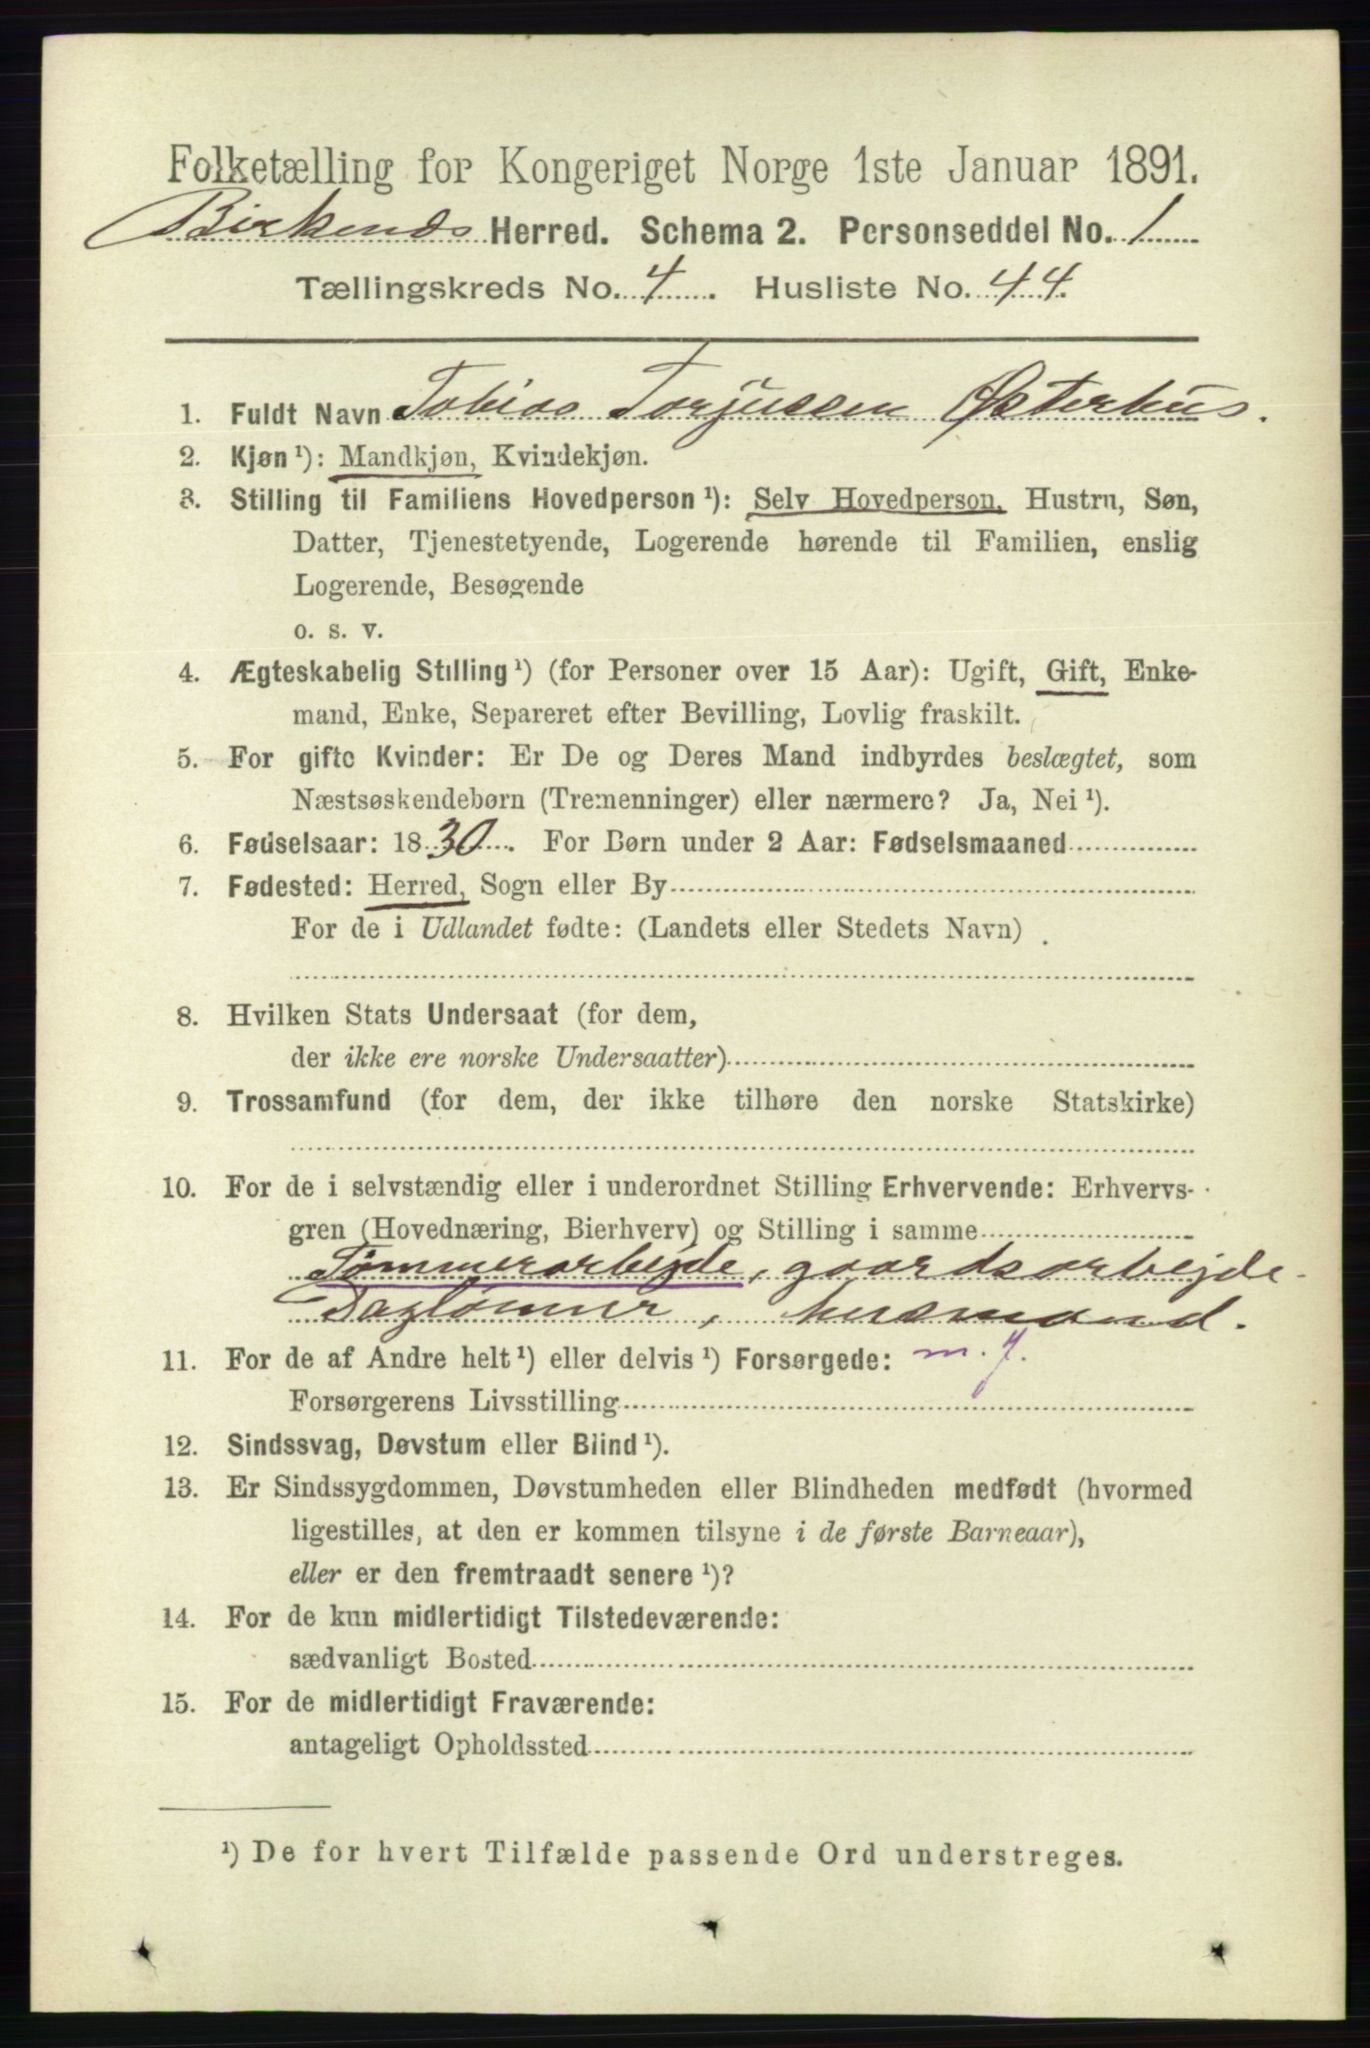 Folketælling for Kongeriget Norge 1ste Januar 1891.
Birkenæs Herred. Schema 2. Personseddel No. 1
Tællingskreds No. 4. Husliste No. 44.
1. Fuldt Navn Tobias Torjussen Østerhus.
2. Kjøn ¹): Mandkjøn, Kvindekjøn.
3. Stilling til Familiens Hovedperson ¹): Selv Hovedperson, Hustru, Søn,
Datter, Tjenestetyende, Logerende hørende til Familien, enslig
Logerende, Besøgende
o. s. v.
4. Ægteskabelig Stilling ¹) (for Personer over 15 Aar): Ugift, Gift, Enke-
mand, Enke, Separeret efter Bevilling, Lovlig fraskilt.
5. For gifte Kvinder: Er De og Deres Mand indbyrdes beslægtet, som
Næstsøskendebørn (Tremenninger) eller nærmere? Ja, Nei ¹).
6. Fødselsaar: 1830. For Børn under 2 Aar: Fødselsmaaned
7. Fødested: Herred, Sogn eller By
For de i Udlandet fødte: (Landets eller Stedets Navn)
8. Hvilken Stats Undersaat (for dem,
der ikke ere norske Undersaatter)
9. Trossamfund (for dem, der ikke tilhøre den norske Statskirke)
10. For de i selvstændig eller i underordnet Stilling Erhvervende: Erhvervs-
gren (Hovednæring, Bierhverv) og Stilling i samme
Tømmerarbejde, gaardsarbejde
Daglønner, husmand.
11. For de af Andre helt ¹) eller delvis ¹) Forsørgede: m. j.
Forsørgerens Livsstilling
12. Sindssvag, Døvstum eller Blind ¹).
13. Er Sindssygdommen, Døvstumheden eller Blindheden medfødt (hvormed
ligestilles, at den er kommen tilsyne i de første Barneaar),
eller er den fremtraadt senere ¹)?
14. For de kun midlertidigt Tilstedeværende:
sædvanligt Bosted
15. For de midlertidigt Fraværende:
antageligt Opholdssted
¹) De for hvert Tilfælde passende Ord understreges.